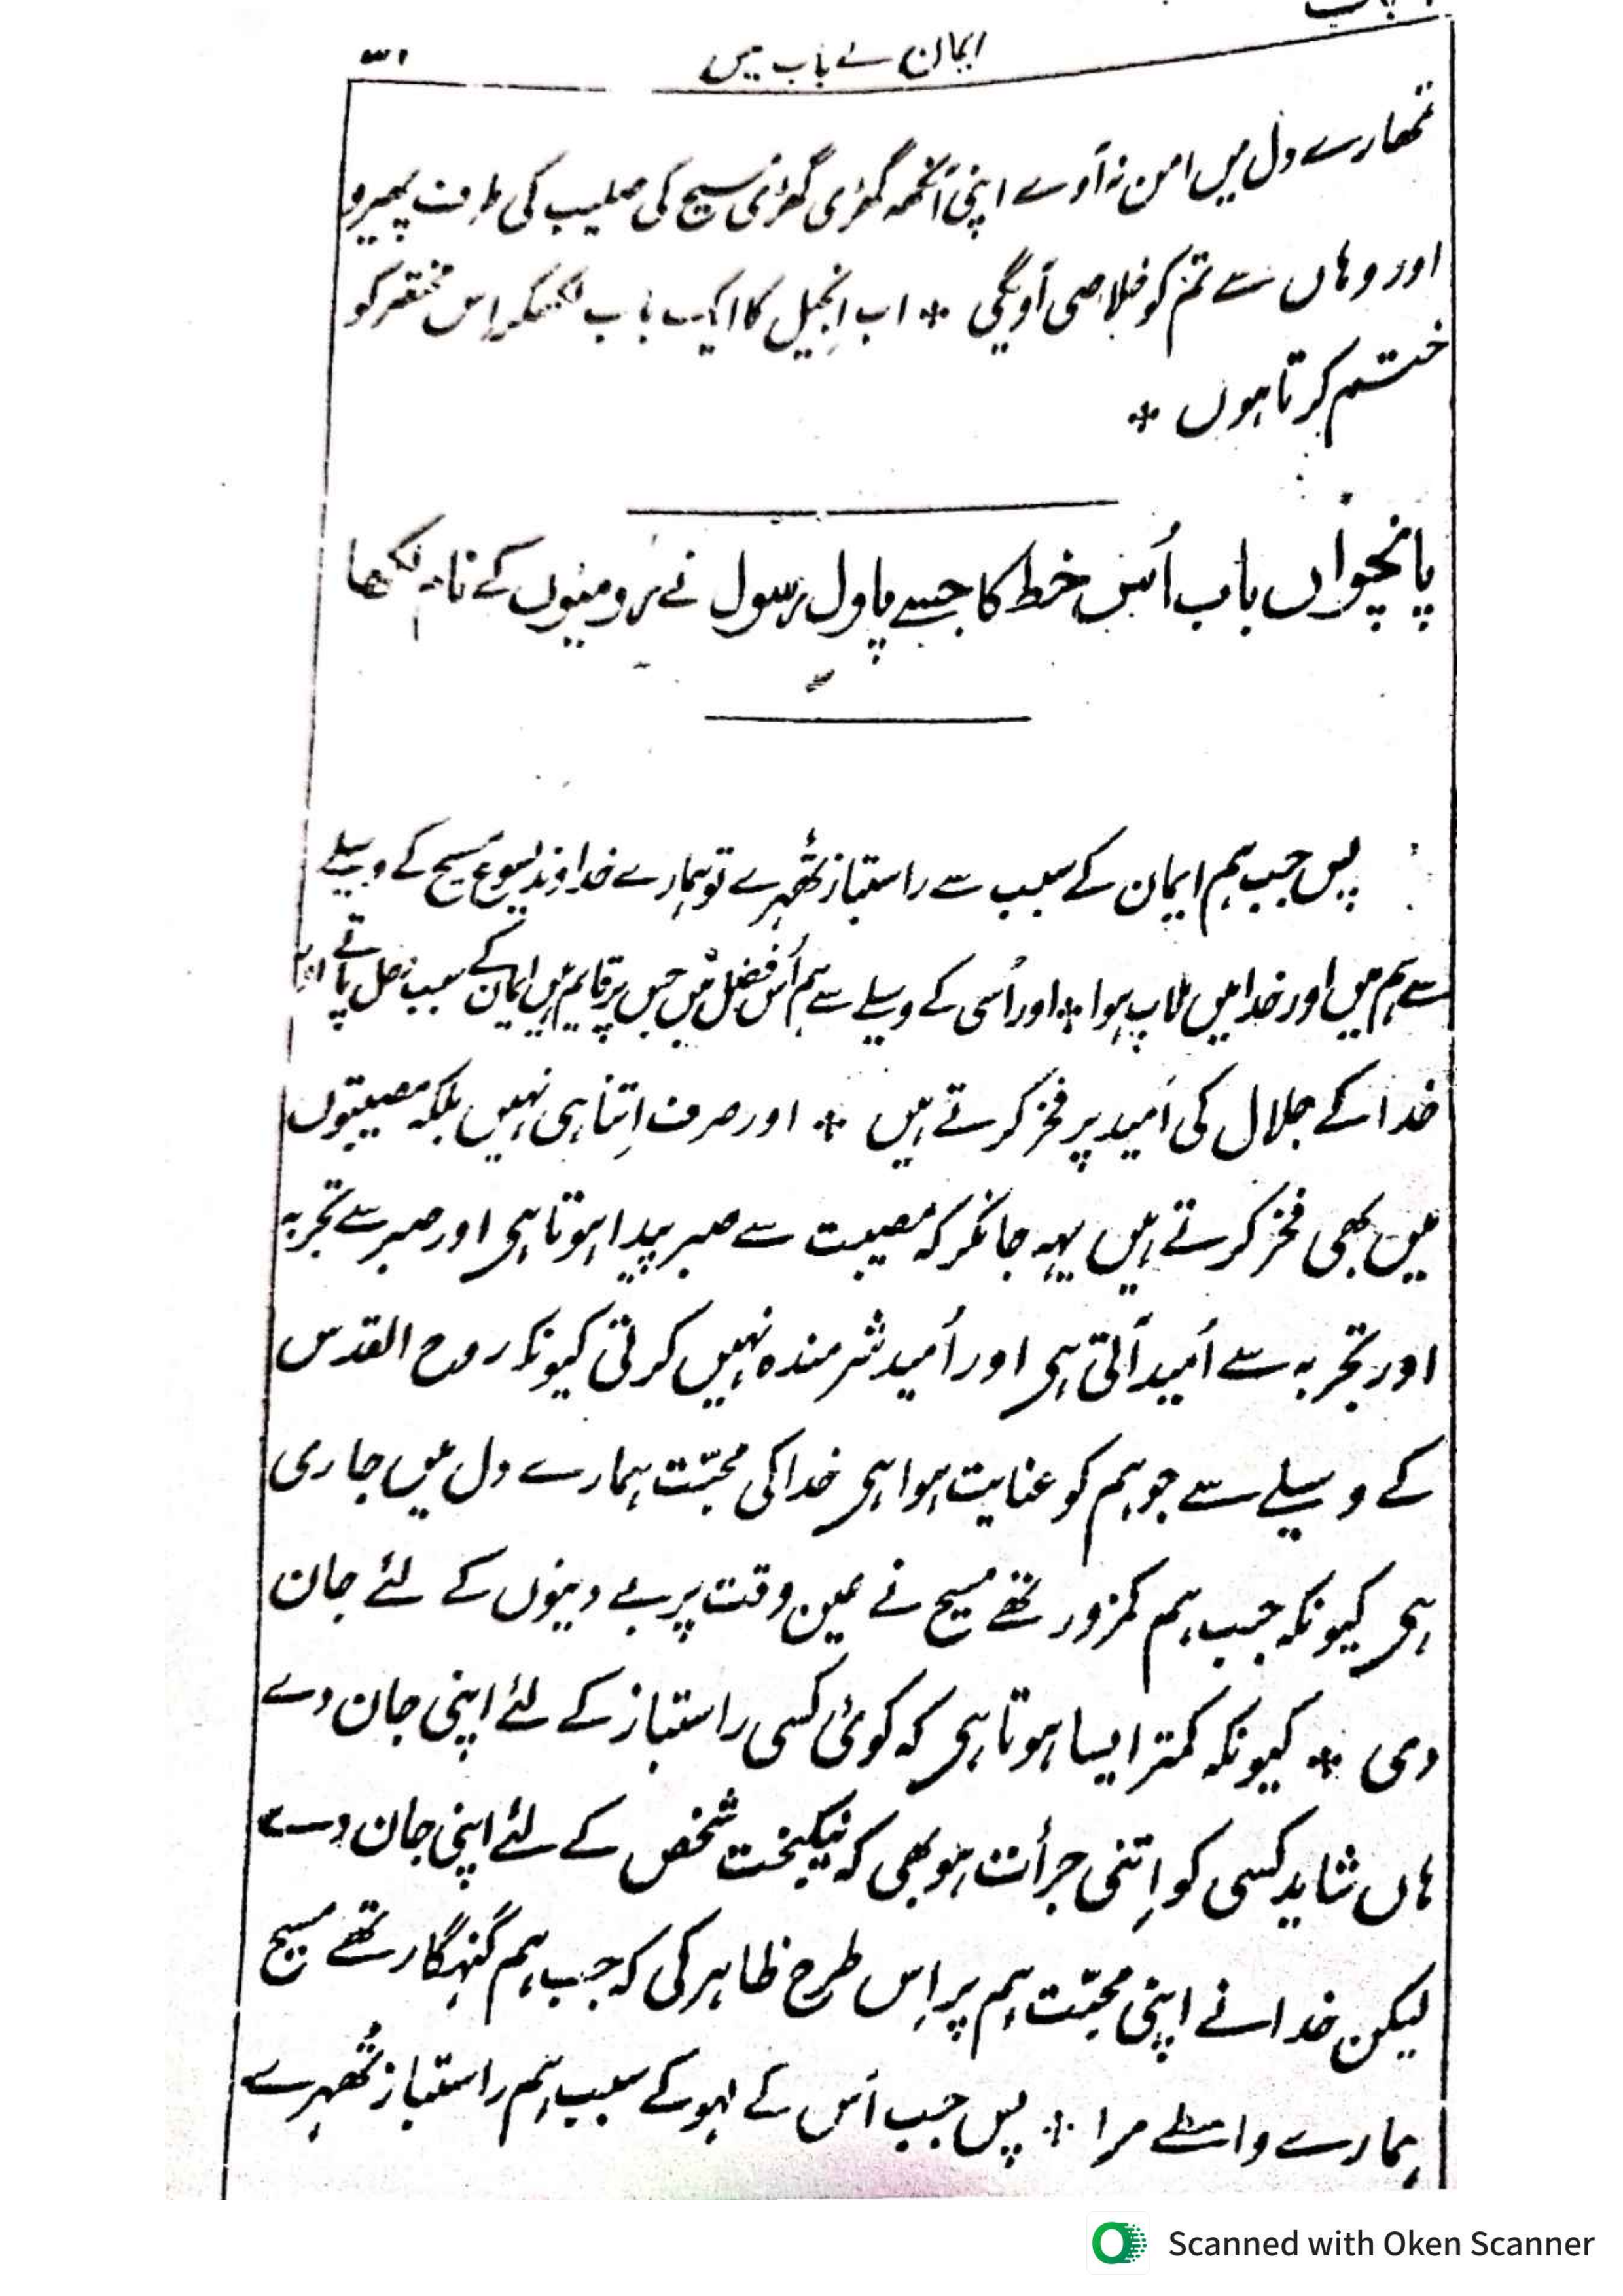 ایمان کے باب میں
تمھارے دل میں امن نہ آوے اپنی آنکھہ گھڑی گھڑی مسیح کی صلیب کی طرف پھیرو
اور وہاں سے تم کو خلاصی آویگی * اب اِنجیل کا ایک باب لکھکر اِس مختصر کو
ختم کرتا ہوں *
پانچواں باب اُس خط کا جسے پاول رسول نے رومیوں کے نام لکھا
پس جب ہم ایمان کے سبب سے راستباز ٹھہرے تو ہمارے خداوند یسوع مسیح کے وسیلے
سے ہم میں اور خدا میں ملاپ ہوا * اور اُسی کے وسیلے سے ہم اُس فضل میں جس پر قایم ہیں ایمان کے سبب دخل پاتے اور
خدا کے جلال کی اُمید پر فخر کرتے ہیں * اور صرف اِتنا ہی نہیں بلکہ مصیبتوں
میں بھی فخر کرتے ہیں یہہ جانکر کہ مصیبت سے صبر پیدا ہوتا ہی اور صبر سے تجربہ
اور تجربہ سے اُمید آتی ہی اور اُمید شرمندہ نہیں کرتی کیونکہ روح القدس
کے وسیلے سے جو ہم کو عنایت ہوا ہی خدا کی محبّت ہمارے دل میں جاری
ہی کیونکہ جب ہم کمزور تھے مسیح نے عین وقت پر بے دینوں کے لئے جان
دی * کیونکہ کمتر ایسا ہوتا ہی کہ کوئی کسی راستباز کے لئے اپنی جان دے
ہاں شاید کسی کو اِتنی جرأت ہو بھی کہ نیکبخت شخص کے لئے اپنی جان دے
لیکن خدا نے اپنی محبّت ہم پر اِس طرح ظاہر کی کہ جب ہم گنہگار تھے مسیح
ہمارے واسطے مرا * پس جب اُس کے لہو کے سبب ہم راستباز ٹھہرے
Scanned with Oken Scanner